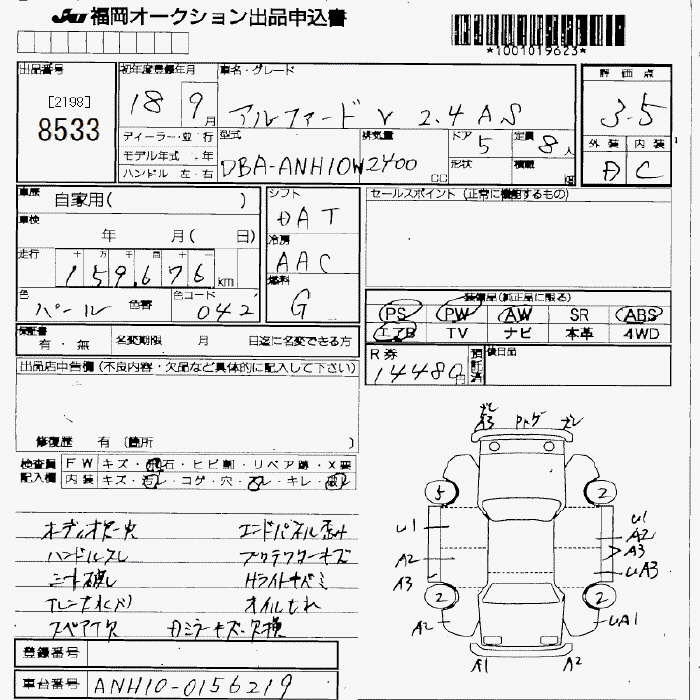 JU 福岡オークション出品申込書
*1001019623*
出品番号
[2198]
8533
初年度登録年月
18 9月
車名・グレード
アルファード V 2.4 AS
評価点
3.5
ディーラー・並行
モデル年式・年
ハンドル 左・右
型式
DBA-ANH10W
排気量
2400 CC
ドア
5
形状
定員
8人
積載
kg
外装 内装
D C
車歴
自家用( )
車検
年 月( 日)
走行
十 万 千 百 十 一
159,676 km
色
パール 色番
色コード
042
シフト
DAT
冷房
AAC
燃料
G
セールスポイント (正常に機能するもの)
装備品(純正品に限る)
PS PW AW SR ABS
エアB TV ナビ 本革 4WD
保証書
有・無
名変期限 月 日迄に名変できる方
R券
14480円
預託済
後日品
出品店申告欄(不良内容・欠品など具体的に記入して下さい)
修復歴 有(箇所 )
検査員記入欄
FW キズ・飛石・ヒビ割・リペア跡・X要
内装 キズ・汚レ・コゲ・穴・スレ・キレ・破レ
ハンドルスレ
エンドパネル歪み
オイルもれ
A3
5 2
U1 U1
A2 A2
A3 A3
UA3
2 2
A2 UA1
A1 A2
登録番号
車台番号
ANH10-0156219